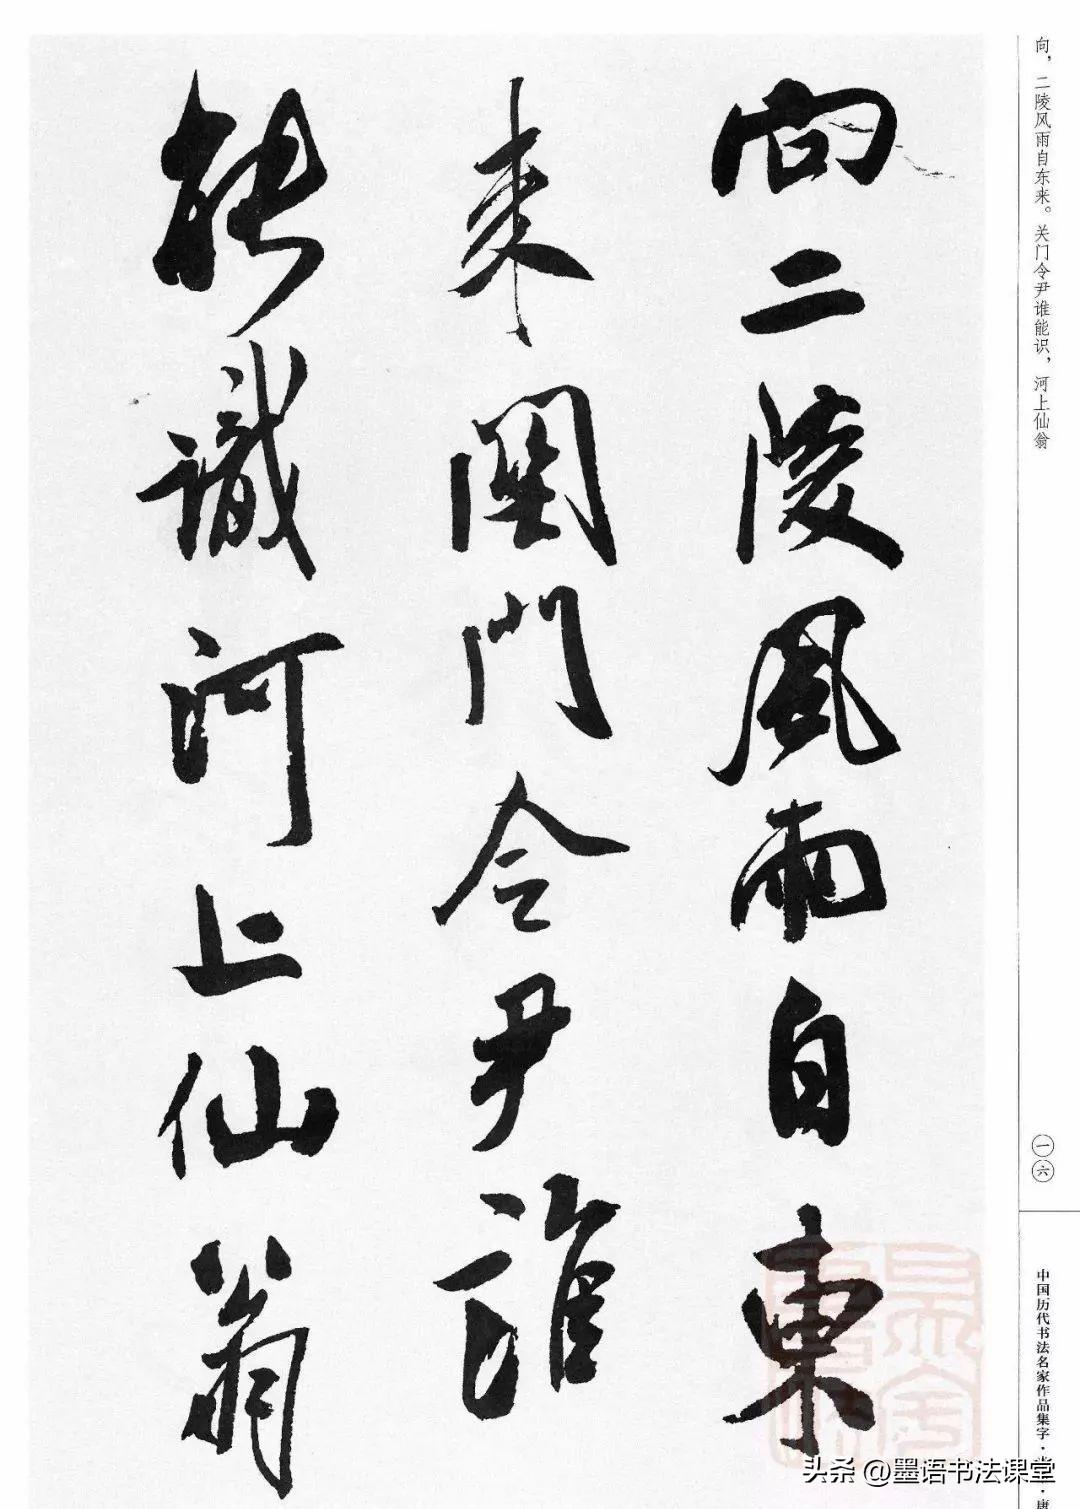 向，二陵风雨自东来。关门令尹谁能识，河上仙翁
向二陵風雨自東
来関門令尹誰
能識河上仙翁
一六
中国历代书法名家作品集字·
头条 @墨语书法课堂